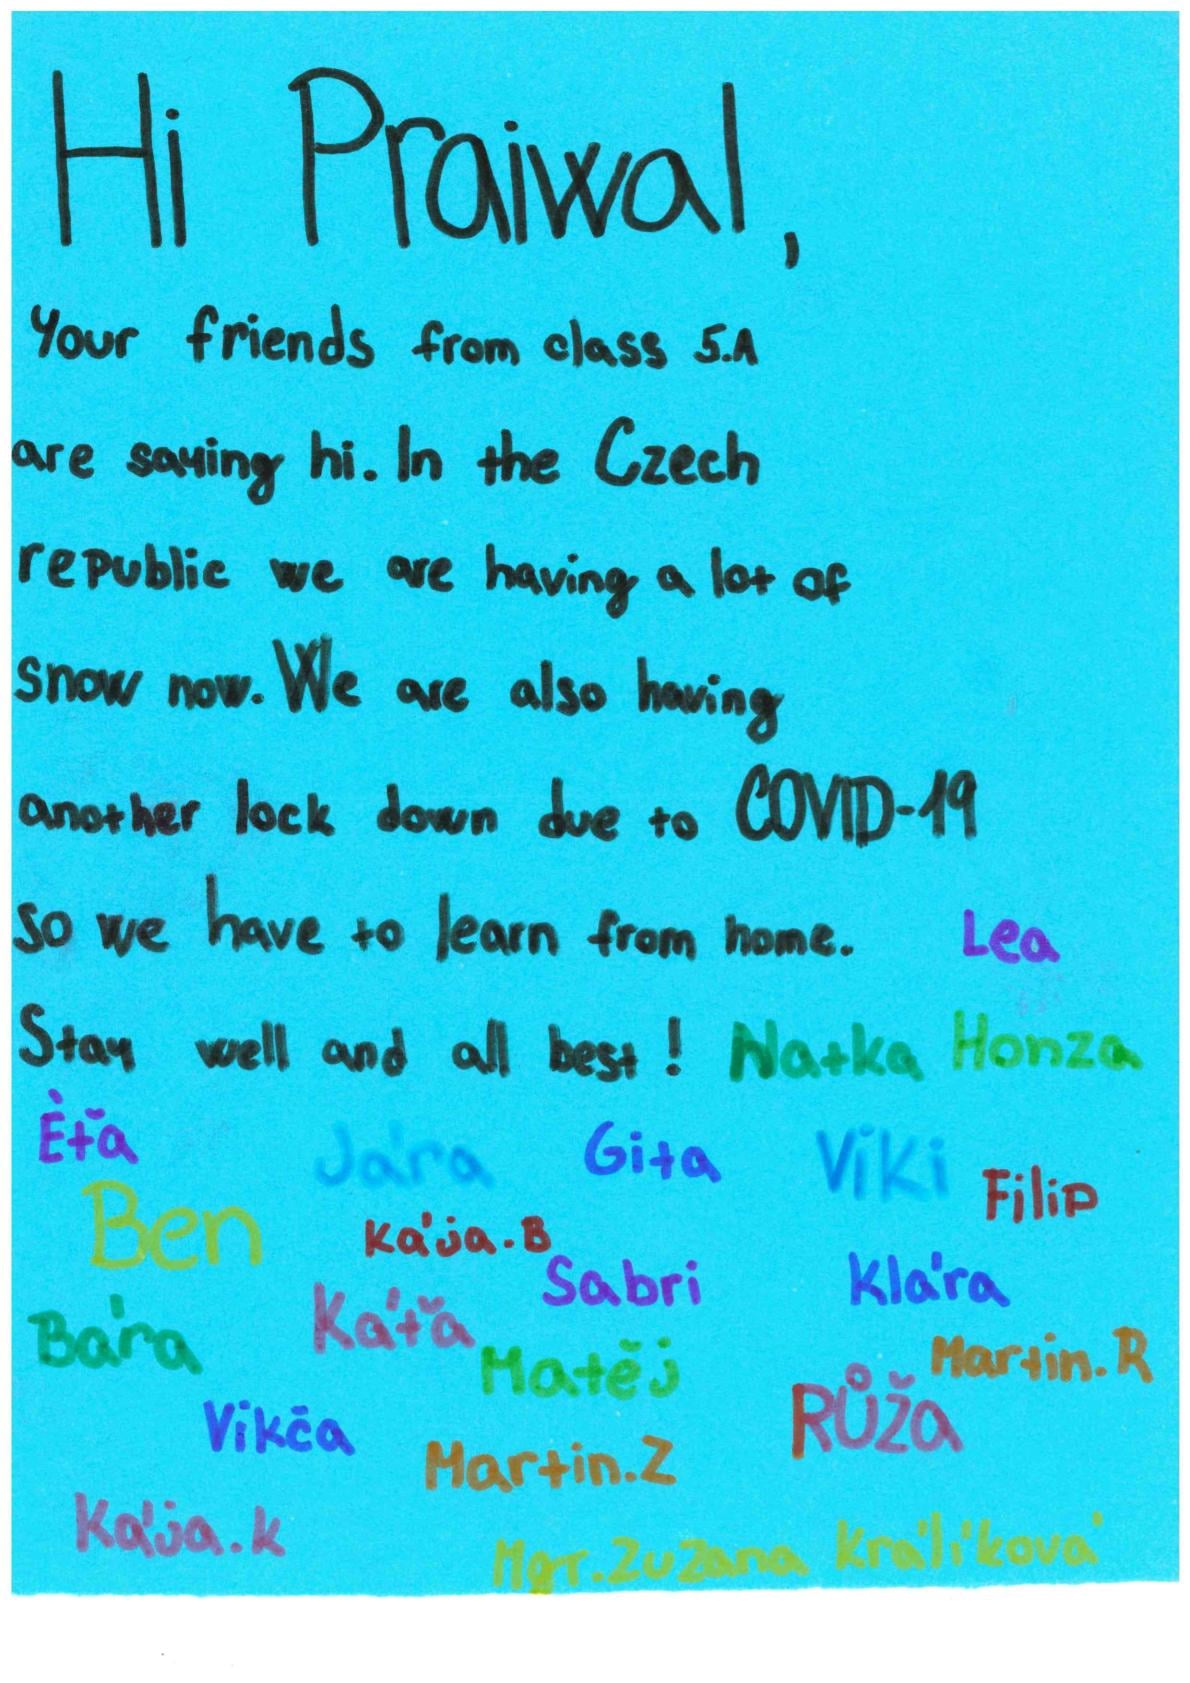 Hi Praiwal,
Your friends from class 5.A
are saying hi. In the Czech
republic we are having a lot of
snow now. We are also having
another lock down due to COVID-19
so we have to learn from home. Lea
Stay well and all best! Natka Honza
Èťa Jára Gita Viki Filip
Ben Kája.B Sabri Klára
Bára Káťa Matěj Martin.R
Vikča Martin.Z Růža
Kája.k Mgr. Zuzana Králíková